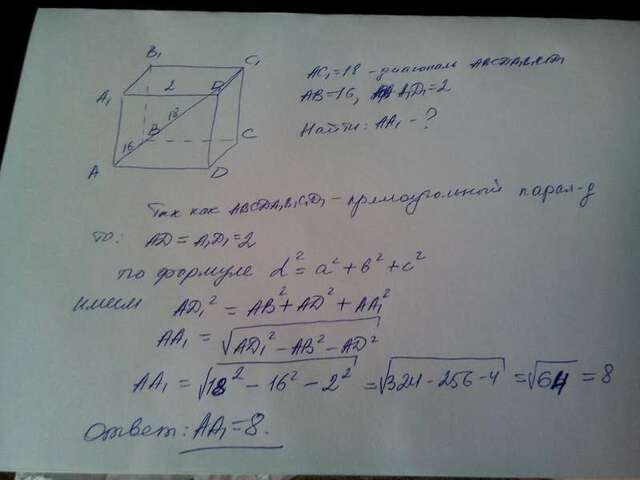 B₁
C₁
A₁
2
D₁
18
B
C
16
A
D
AC₁=18 - диагональ ABCDA₁B₁C₁D₁
AB=16, A₁D₁=2
Найти: AA₁ - ?
Так как ABCDA₁B₁C₁D₁ - прямоугольный парал-д
то: AD = A₁D₁=2
по формуле d² = a² + b² + c²
имеем AD₁² = AB² + AD² + AA₁²
AA₁ = √(AD₁² - AB² - AD²)
AA₁ = √(18² - 16² - 2²) = √(324 - 256 - 4) = √64 = 8
Ответ: AA₁ = 8.